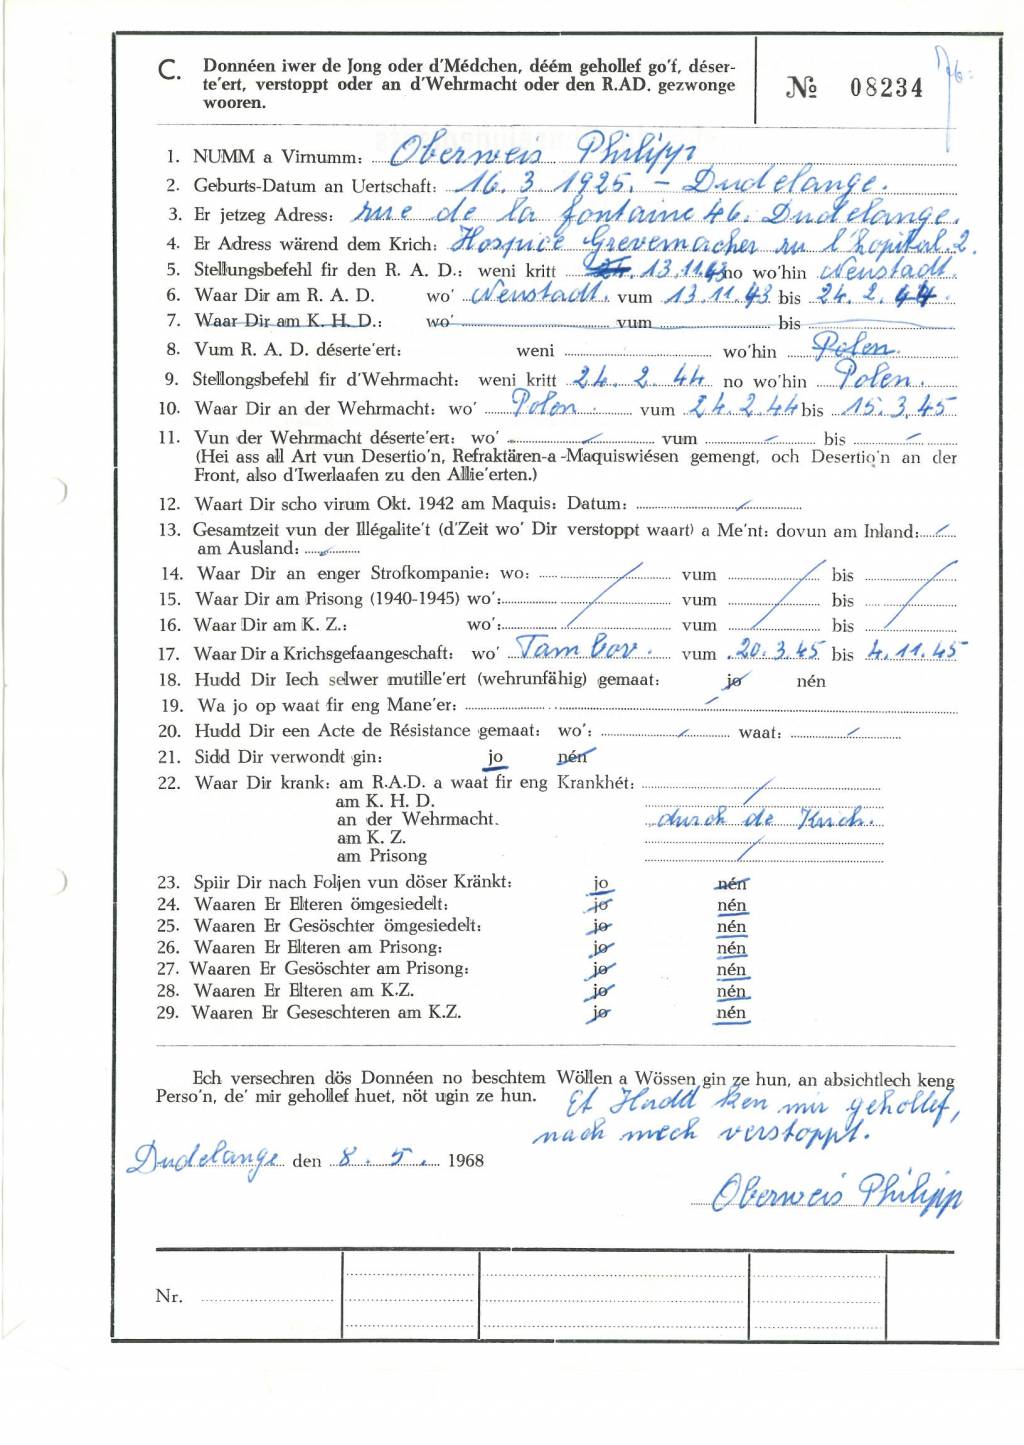 C. Donnéen iwer de Jong oder d'Médchen, déém gehollef go'f, déser-
te'ert, verstoppt oder an d'Wehrmacht oder den R.AD. gezwonge
wooren.
№ 08234
1. NUMM a Virnumm: Oberweis Philipp
2. Geburts-Datum an Uertschaft: 16. 3. 1925. - Dudelange.
3. Er jetzeg Adress: rue de la fontaine 46. Dudelange.
4. Er Adress wärend dem Krich: Hospice Grevemacher ru l'hopital. 2.
5. Stellungsbefehl fir den R. A. D.: weni kritt 13.11.43 no wo'hin Neustadt.
6. Waar Dir am R. A. D. wo' Neustadt. vum 13.11.43 bis 24. 2. 44.
7. Waar Dir am K. H. D.: wo' vum bis
8. Vum R. A. D. déserte'ert: weni wo'hin Polen.
9. Stellongsbefehl fir d'Wehrmacht: weni kritt 24. 2. 44 no wo'hin Polen.
10. Waar Dir an der Wehrmacht: wo' Polen. vum 24.2.44 bis 15.3.45
11. Vun der Wehrmacht déserte'ert: wo' vum bis
(Hei ass all Art vun Desertio'n, Refraktären-a -Maquiswiésen gemengt, och Desertio'n an der
Front, also d'Iwerlaafen zu den Allie'erten.)
12. Waart Dir scho virum Okt. 1942 am Maquis: Datum:
13. Gesamtzeit vun der Illégalite't (d'Zeit wo' Dir verstoppt waart) a Me'nt: dovun am Inland:
am Ausland:
14. Waar Dir an enger Strofkompanie: wo: vum bis
15. Waar Dir am Prisong (1940-1945) wo': vum bis
16. Waar Dir am K. Z.: wo': vum bis
17. Waar Dir a Krichsgefaangeschaft: wo' Tambov. vum 20.3.45 bis 4.11.45
18. Hudd Dir Iech selwer mutille'ert (wehrunfähig) gemaat: jo nén
19. Wa jo op waat fir eng Mane'er:
20. Hudd Dir een Acte de Résistance gemaat: wo': waat:
21. Sidd Dir verwondt gin: jo nén
22. Waar Dir krank: am R.A.D. a waat fir eng Krankhét:
am K. H. D.
an der Wehrmacht. durch de Krich.
am K. Z.
am Prisong
23. Spiir Dir nach Foljen vun döser Kränkt: jo nén
24. Waaren Er Elteren ömgesiedelt: jo nén
25. Waaren Er Gesöschter ömgesiedelt: jo nén
26. Waaren Er Elteren am Prisong: jo nén
27. Waaren Er Gesöschter am Prisong: jo nén
28. Waaren Er Elteren am K.Z. jo nén
29. Waaren Er Geseschteren am K.Z. jo nén
Ech versechren dös Donnéen no beschtem Wöllen a Wössen gin ze hun, an absichtlech keng
Perso'n, de' mir gehollef huet, nöt ugin ze hun. Et Hudd ken mir gehollef,
nach mech verstoppt.
Dudelange den 8. 5. 1968
Oberweis Philipp
Nr.